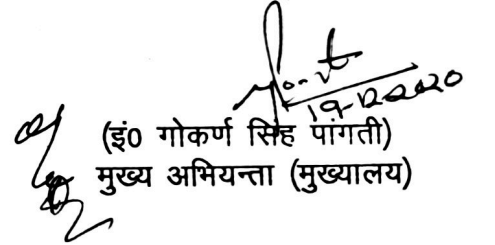 19-12-2020
(इं0 गोकर्ण सिंह पांगती)
मुख्य अभियन्ता (मुख्यालय)